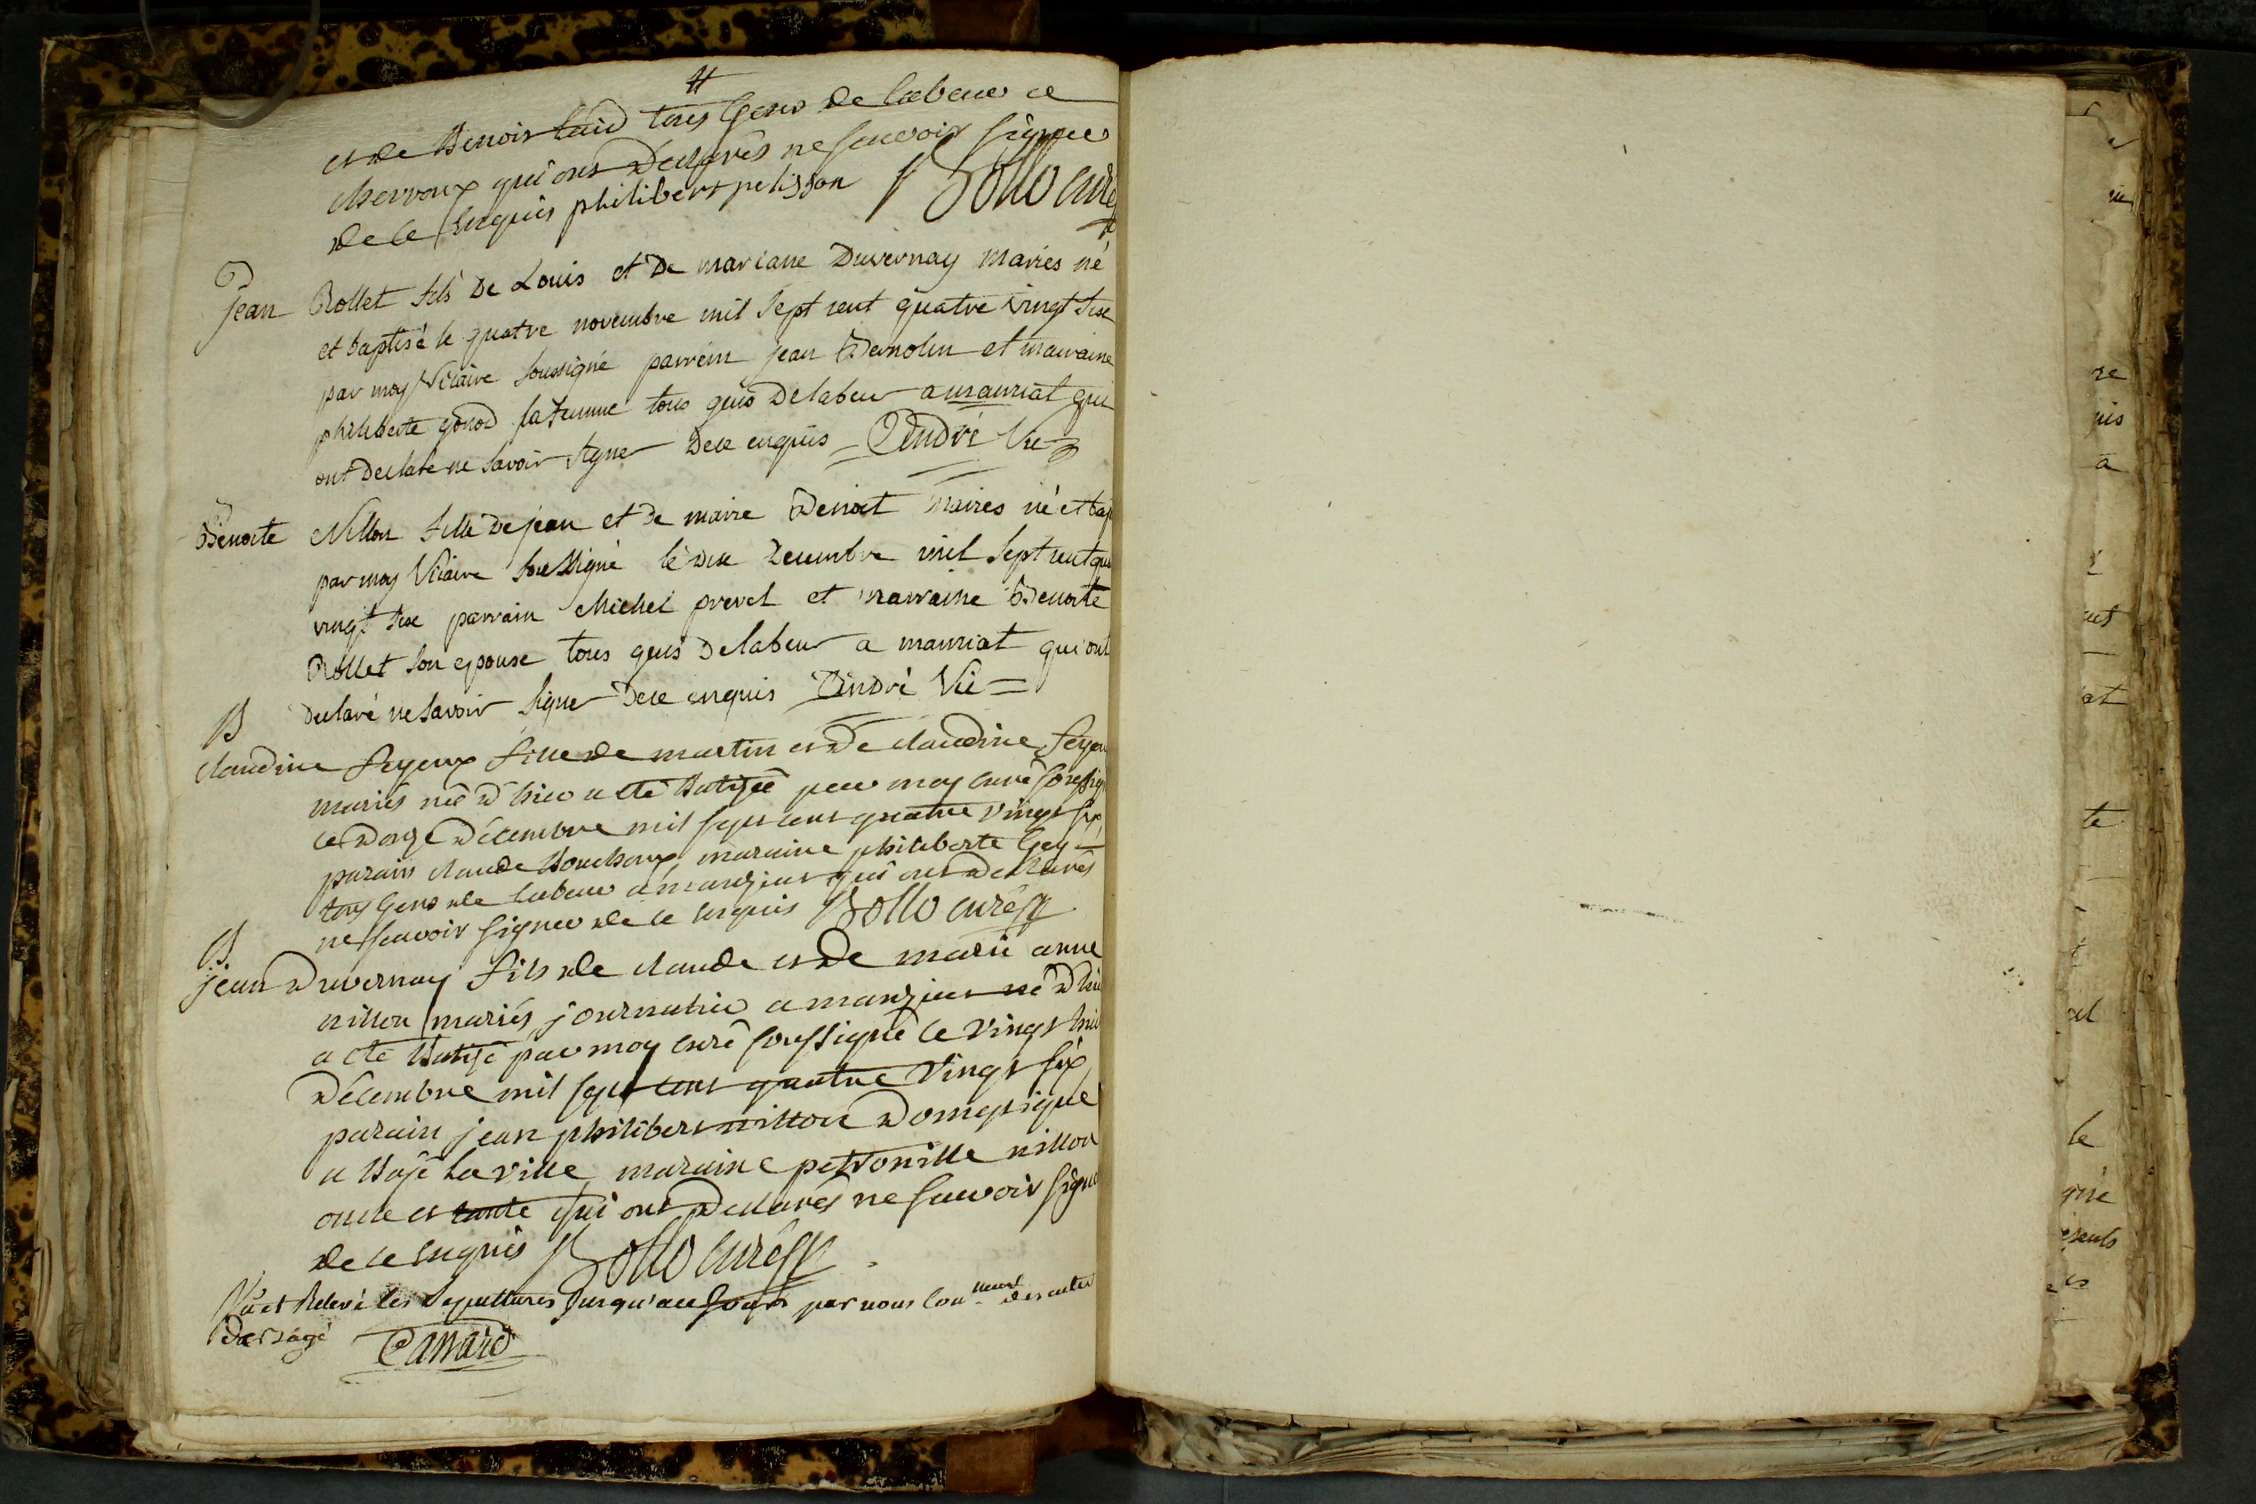 et de Benoit tous Gens de labeur a
chervoux qui ont Declarés ne scavoir signer
de ce Enquis philibert pelisson Bollo curé
jean Rollet fils De Louis et De mariane Duvernay mariés né
et baptisé le quatre novembre mil sept cent quatre vingt six
par moy Vicaire soussigné parrein jean Bernolin et marraine
philiberte gonod sa femme tous gens Delabeur a manziat qui
ont Declaré ne savoir signer Dece enquis André Vic
Benoite Nillon fille De jean et de marie Benoit mariés né et bap
par moy Vicaire soussigné le dix Decembre mil sept cent qua
vingt six parrain Michel prevel et marraine Benoite
Rollet son epouse tous gens Delabeur a manziat qui ont
declaré ne savoir signer Dece enquis André Vic
B
claudine feyeux fille de martin et De claudine feyeu
mariés née d'hier a eté Batisée par moy curé soussign
ce onze Décembre mil sept cent quatre vingt six,
parain claude Bouchoux, maraine philiberte Gey
tous Gens de labeur a manziat qui ont Declarés
ne scavoir signer de ce Enquis Bollo curé
B
jean Duvernay fils de claude et De marie anne
nillon mariés journalier a manziat né d'hier
a eté Batisé par moy curé soussigné le vingt huit
Décembre mil sept cent quatre vingt six
parain jean philibert nillon Domestique
a Bagé la ville maraine petronille nillon
oncle et tante qui ont Declarés ne scavoir signe
de ce Enquis Bollo curé
Vu et Relevé les Sepultures jusqu'au par nous